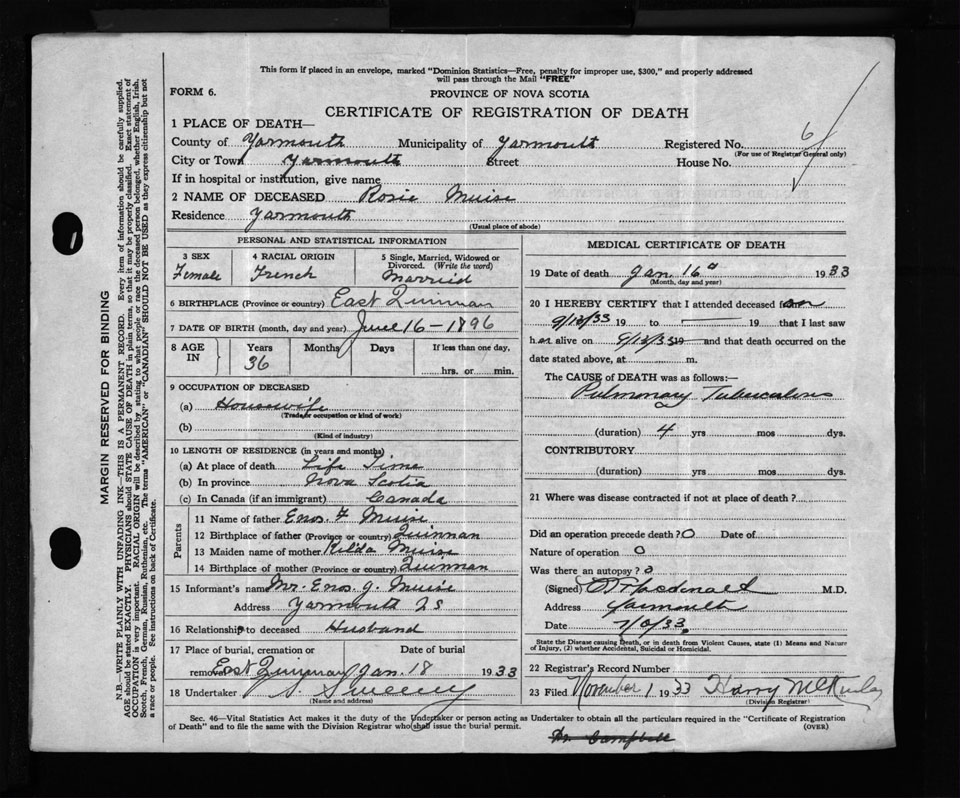 This form if placed in an envelope, marked "Dominion Statistics—Free, penalty for improper use, $300," and properly addressed
will pass through the Mail "FREE"
FORM 6.
PROVINCE OF NOVA SCOTIA
CERTIFICATE OF REGISTRATION OF DEATH
1 PLACE OF DEATH—
County of Yarmouth Municipality of Yarmouth Registered No. 6
(For use of Registrar General only)
City or Town Yarmouth Street House No.
If in hospital or institution, give name
2 NAME OF DECEASED Rosie Muise
Residence Yarmouth
(Usual place of abode)
PERSONAL AND STATISTICAL INFORMATION
3 SEX 4 RACIAL ORIGIN 5 Single, Married, Widowed or
Divorced. (Write the word)
Female French Married
6 BIRTHPLACE (Province or country) East Quinnan
7 DATE OF BIRTH (month, day and year) June 16 - 1896
8 AGE IN Years Months Days If less than one day,
36 hrs. or min.
9 OCCUPATION OF DECEASED
(a) Housewife
(Trade, occupation or kind of work)
(b)
(Kind of industry)
10 LENGTH OF RESIDENCE (in years and months)
(a) At place of death Life Time
(b) In province Nova Scotia
(c) In Canada (if an immigrant) Canada
Parents
11 Name of father Enos. F Muise
12 Birthplace of father (Province or country) Quinnan
13 Maiden name of mother Muise
14 Birthplace of mother (Province or country) Quinnan
15 Informant's name Mr. Enos. J. Muise
Address Yarmouth
16 Relationship to deceased Husband
17 Place of burial, cremation or Date of burial
removal East Quinnan Jan. 18 1933
18 Undertaker Sweeney
(Name and address)
MEDICAL CERTIFICATE OF DEATH
19 Date of death Jan. 16 1933
(Month, day and year)
20 I HEREBY CERTIFY that I attended deceased from on
9/13/33 19 to — 19 that I last saw
her alive on 9/13/33 19 and that death occurred on the
date stated above, at m.
The CAUSE of DEATH was as follows:—
Pulmonary Tuberculosis
(duration) 4 yrs mos dys.
CONTRIBUTORY
(duration) yrs mos dys.
21 Where was disease contracted if not at place of death?
Did an operation precede death? 0 Date of
Nature of operation 0
Was there an autopsy?
(Signed) Macdonald M.D.
Address Yarmouth
Date
State the Disease causing Death, or in death from Violent Causes, state (1) Means and Nature
of Injury, (2) whether Accidental, Suicidal or Homicidal.
22 Registrar's Record Number
23 Filed November 1 1933 Harry
(Division Registrar)
Sec. 46—Vital Statistics Act makes it the duty of the Undertaker or person acting as Undertaker to obtain all the particulars required in the "Certificate of Registration
of Death" and to file the same with the Division Registrar who shall issue the burial permit.
(OVER)
Dr. Campbell
MARGIN RESERVED FOR BINDING
N.B.—WRITE PLAINLY WITH UNFADING INK—THIS IS A PERMANENT RECORD. Every item of information should be carefully supplied.
AGE should be stated EXACTLY. PHYSICIANS should STATE CAUSE OF DEATH in plain terms, so that it may be properly classified. Exact statement of
OCCUPATION is very important. RACIAL ORIGIN will be described by stating to what people or race the deceased person belonged, whether English, Irish,
Scotch, French, German, Russian, Ruthenian, etc. The terms "AMERICAN" or "CANADIAN" SHOULD NOT BE USED as they express citizenship but not
a race or people. See instructions on back of Certificate.